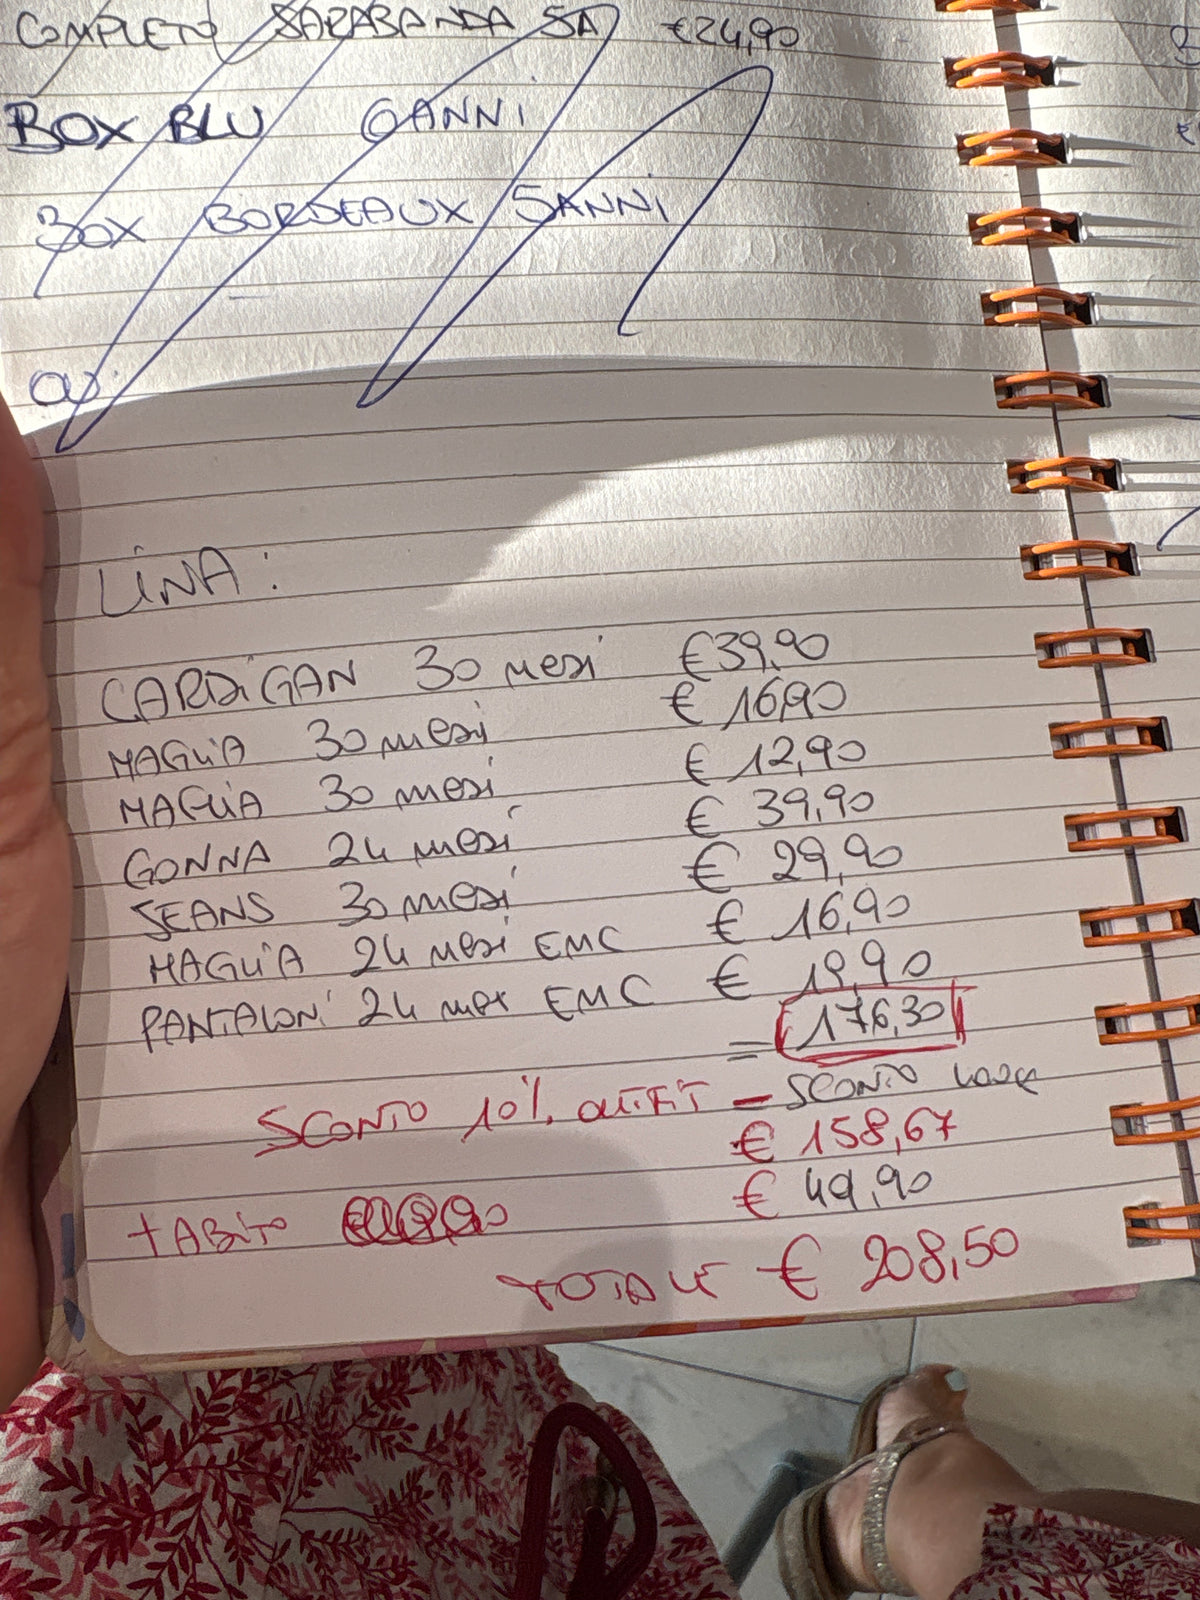 COMPLETO SARABANDA 5A €24,90
BOX BLU 6ANNi
BOX BORDEAUX 5ANNi
LiNA:
CARDiGAN 30 mesi €39,90
MAGLiA 30 mesi € 16,90
MAGLiA 30 mesi € 12,90
GONNA 24 mesi € 39,90
JEANS 30 mesi € 29,90
MAGLiA 24 mesi EMC € 16,90
PANTALONi 24 mesi EMC € 19,90
= 176,30
SCONTO 10% OUTFiT - SCONTO
€ 158,67
+ ABiTO € 49,90
TOTALE € 208,50